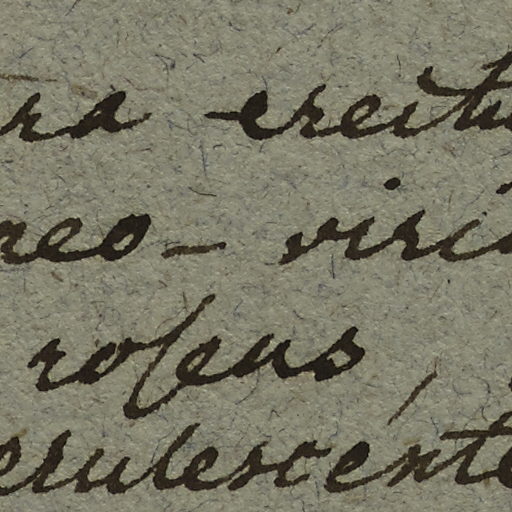 ra erectiu
neo- viri
roſeus,
erulescente